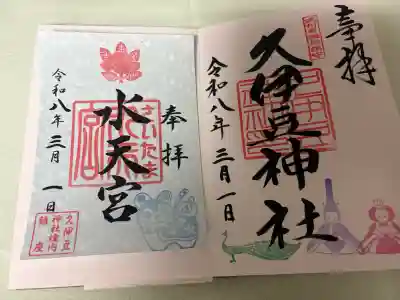 奉拝
久伊豆神社
令和八年 三月 一日
奉拝
水天宮
さいたま
令和八年 三月 一日
久伊豆
神社境内
鎮座